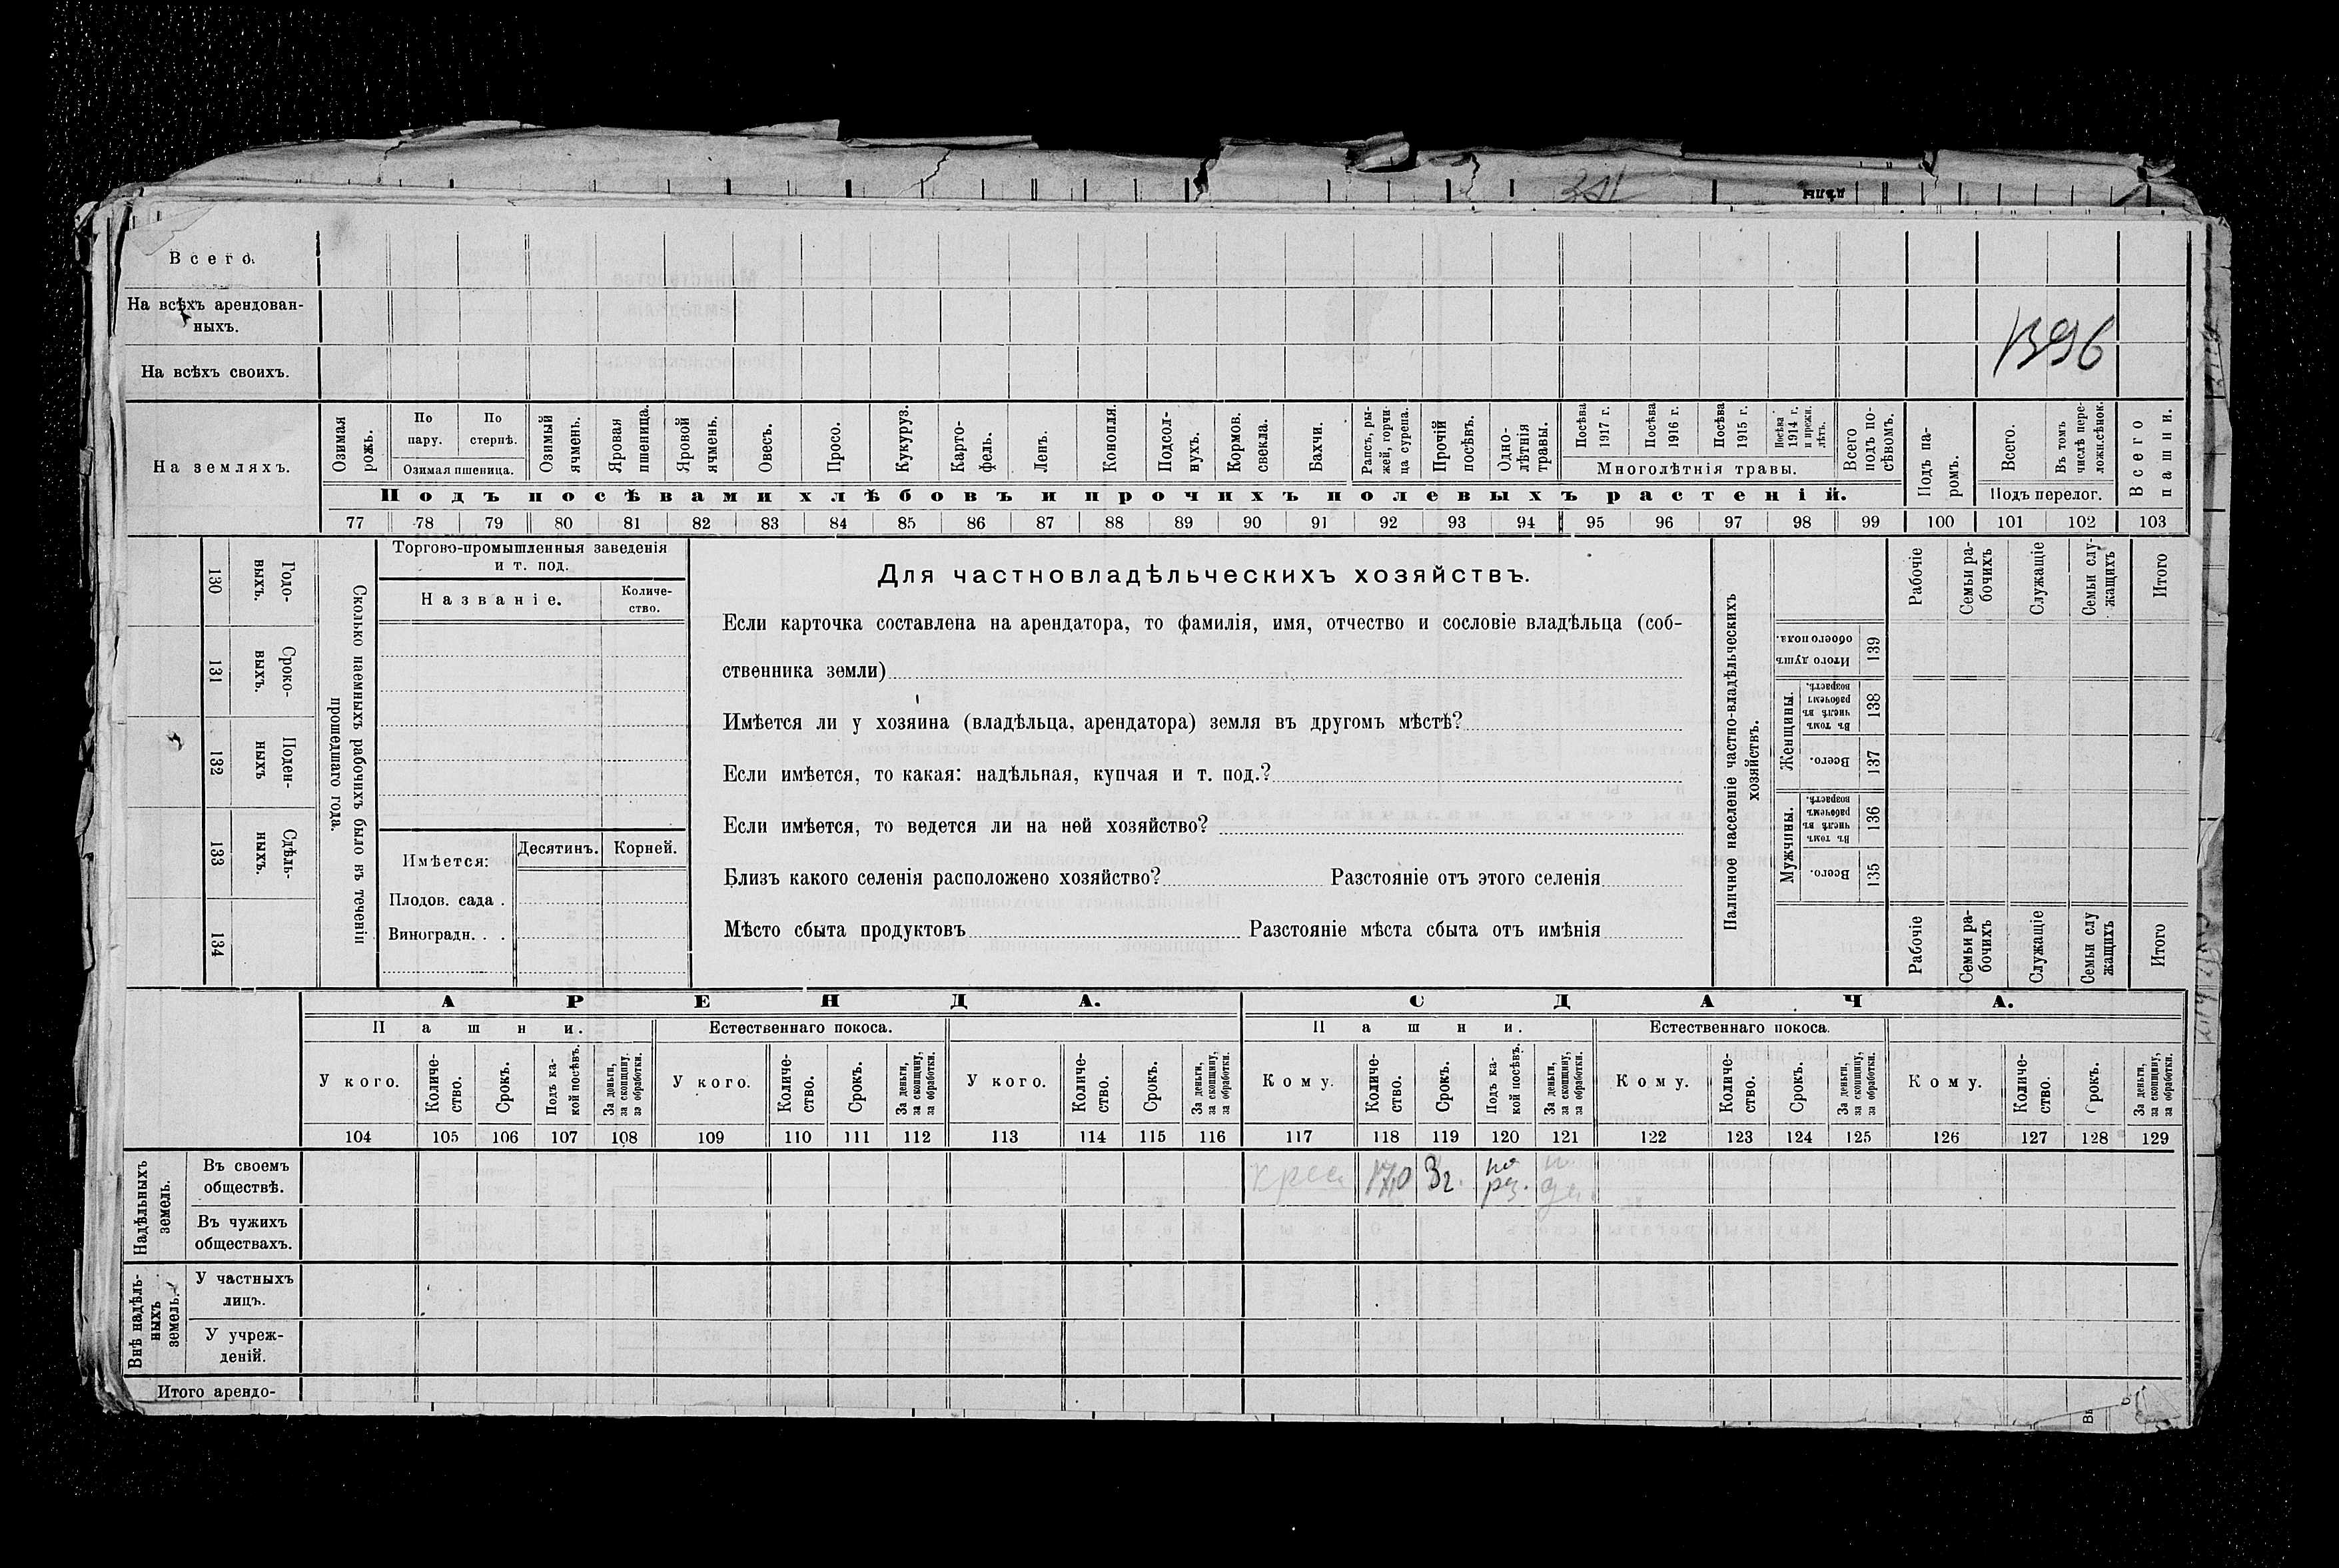 Всего.
На всѣхъ арендован-
ныхъ.
1396
На всѣхъ своихъ.
На земляхъ.
Озимая рожь.
По пару.
По стернѣ.
Озимая пшеница.
Озимый ячмень.
Яровая пшеница.
Яровой ячмень.
Овесъ.
Просо.
Кукуруз.
Карто-
фель.
Ленъ.
Конопля.
Подсол-
нухъ.
Кормов. свекла.
Бахчи.
Рапсъ, ры-
жей, горчи-
ца сурепа.
Прочій посѣвъ.
Одно-
лѣтнія травы.
Посѣва 1917 г.
Посѣва 1916 г.
Посѣва 1915 г.
Посѣва 1914 г. и прежн. лѣтъ.
Многолѣтнія травы.
Всего подъ по-
сѣвомъ.
Подъ посѣвами хлѣбовъ и прочихъ полевыхъ растеній.
Подъ па-
ромъ.
Всего.
Въ томъ числѣ пере-
ложн.сѣнок.
Подъ перелог.
Всего пашни.
77 78 79 80 81 82 83 84 85 86 87 88 89 90 91 92 93 94 95 96 97 98 99 100 101 102 103
130 Годо-
выхъ.
131 Сроко-
выхъ.
132 Поден-
ныхъ
133 Сдѣль-
ныхъ.
134
Сколько наемныхъ рабочихъ было въ теченіи
прошедшаго года.
Торгово-промышленныя заведенія
и т. под.
Названіе.
Количе-
ство.
Имѣется:
Десятинъ.
Корней.
Плодов. сада .
Виноградн. . .
Для частновладѣльческихъ хозяйствъ.
Если карточка составлена на арендатора, то фамилія, имя, отчество и сословіе владѣльца (соб-
ственника земли)
Имѣется ли у хозяина (владѣльца, арендатора) земля въ другомъ мѣстѣ?
Если имѣется, то какая: надѣльная, купчая и т. под.?
Если имѣется, то ведется ли на ней хозяйство?
Близъ какого селенія расположено хозяйство? Разстояніе отъ этого селенія
Мѣсто сбыта продуктовъ Разстояніе мѣста сбыта отъ имѣнія
Наличное населеніе частно-владѣльческихъ
хозяйствъ.
Рабочіе
Семьи ра-
бочихъ
Служащіе
Семьи слу-
жащихъ
Итого
Итого душъ обоего пола. 139
Женщины.
Въ томъ числѣ въ рабочемъ возрастѣ. 138
Всего. 137
Мужчины.
Въ томъ числѣ въ рабочемъ возрастѣ. 136
Всего. 135
Рабочіе
Семьи ра-
бочихъ
Служащіе
Семьи слу
жащихъ
Итого
АРЕНДА.
СДАЧА.
Пашни.
Естественнаго покоса.
Пашни.
Естественнаго покоса.
У кого.
Количе-
ство.
Срокъ.
Подъ ка-
кой посѣвъ.
За деньги, за скопщину, за обработки.
У кого.
Количе-
ство.
Срокъ.
За деньги, за скопщину, за обработки.
У кого.
Количе-
ство.
Срокъ.
За деньги, за скопщину, за обработки.
Кому.
Количе-
ство.
Срокъ.
Подъ ка-
кой посѣвъ.
За деньги, за скопщину, за обработки.
Кому.
Количе-
ство.
Срокъ.
За деньги, за скопщину, за обработки.
Кому.
Количе-
ство.
Срокъ.
За деньги, за скопщину, за обработки.
104 105 106 107 108 109 110 111 112 113 114 115 116 117 118 119 120 121 122 123 124 125 126 127 128 129
Надѣльныхъ земель.
Въ своемъ
обществѣ.
3 г.
Въ чужихъ
обществахъ.
Внѣ надѣль-
ныхъ земель.
У частныхъ
лицъ.
У учреж-
деній.
Итого арендо-